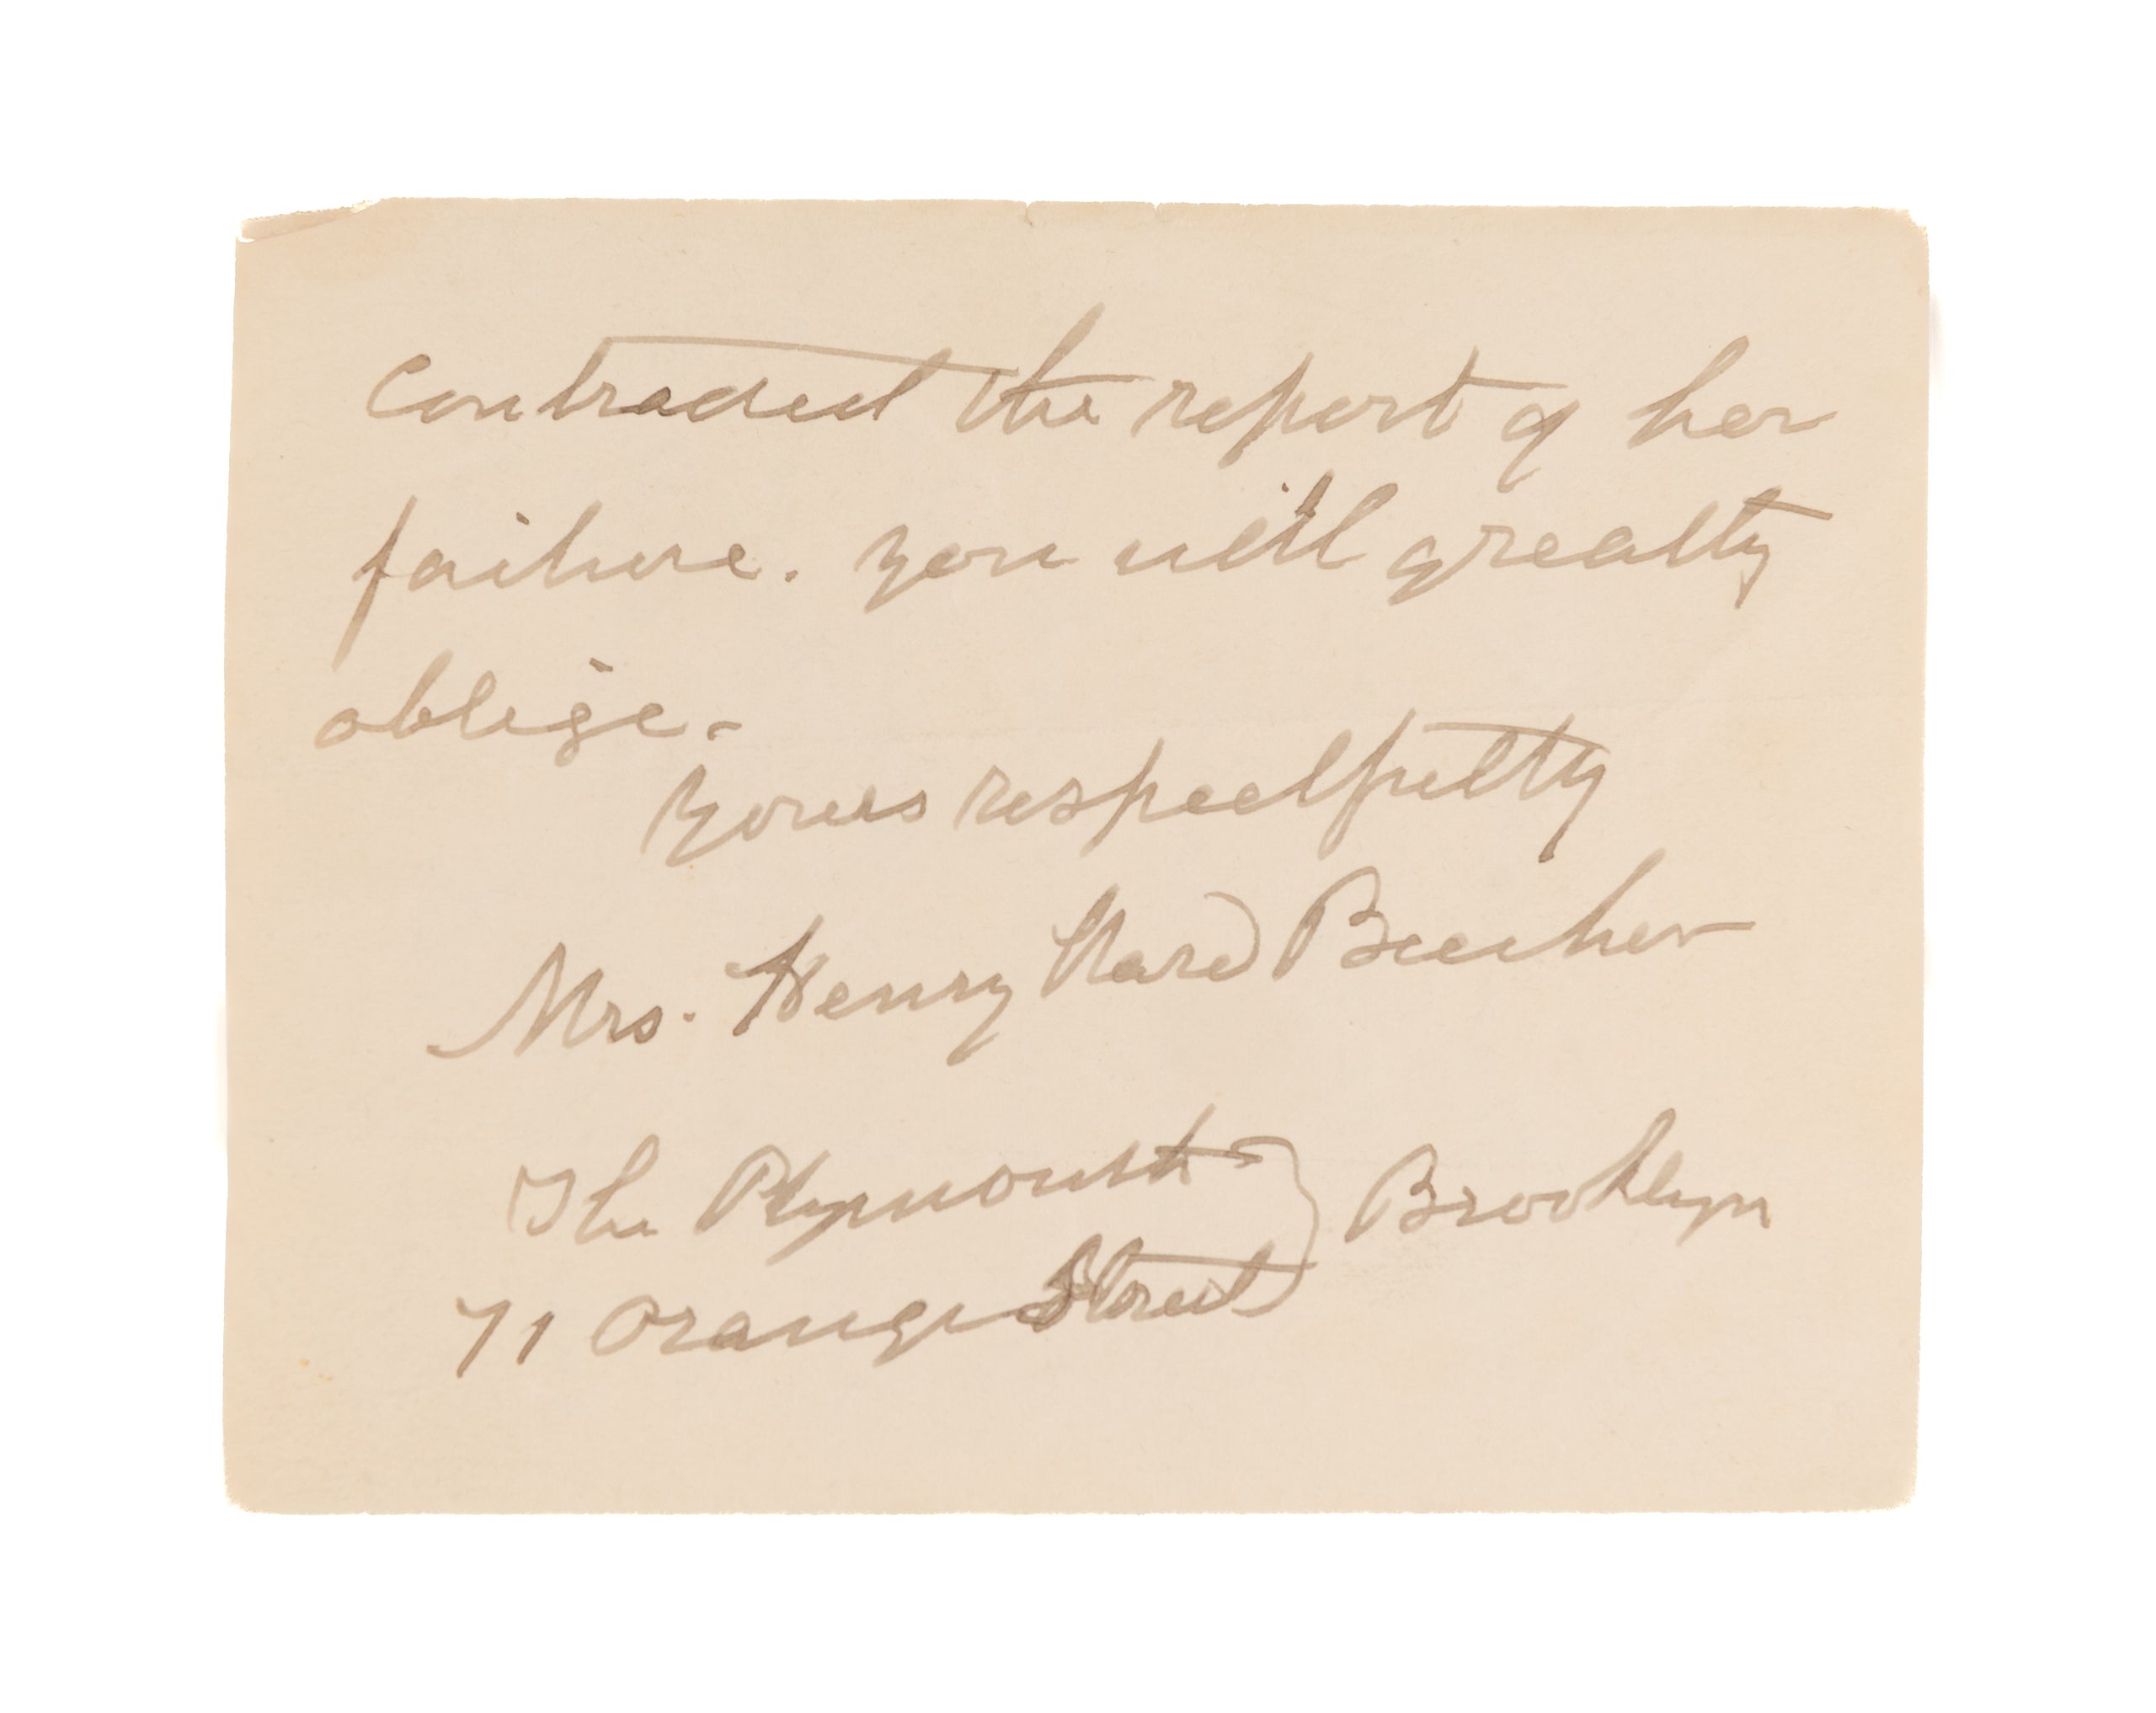 contradict the report of her
failure. you will greatly
oblige.
Yours respectfully
Mrs. Henry Ward Beecher
The Plymouth
Brooklyn
71 Orange Street